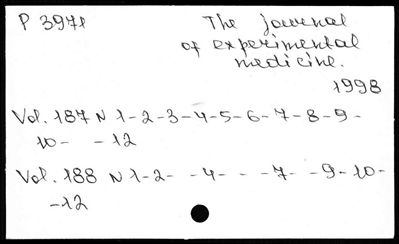 P 3971
The journal
of experimental
medicine.
1998
Vol. 187 N 1-2-3-4-5-6-7-8-9-
10- -12
Vol. 188 N 1-2- -4- - -7- -9-10-
-12